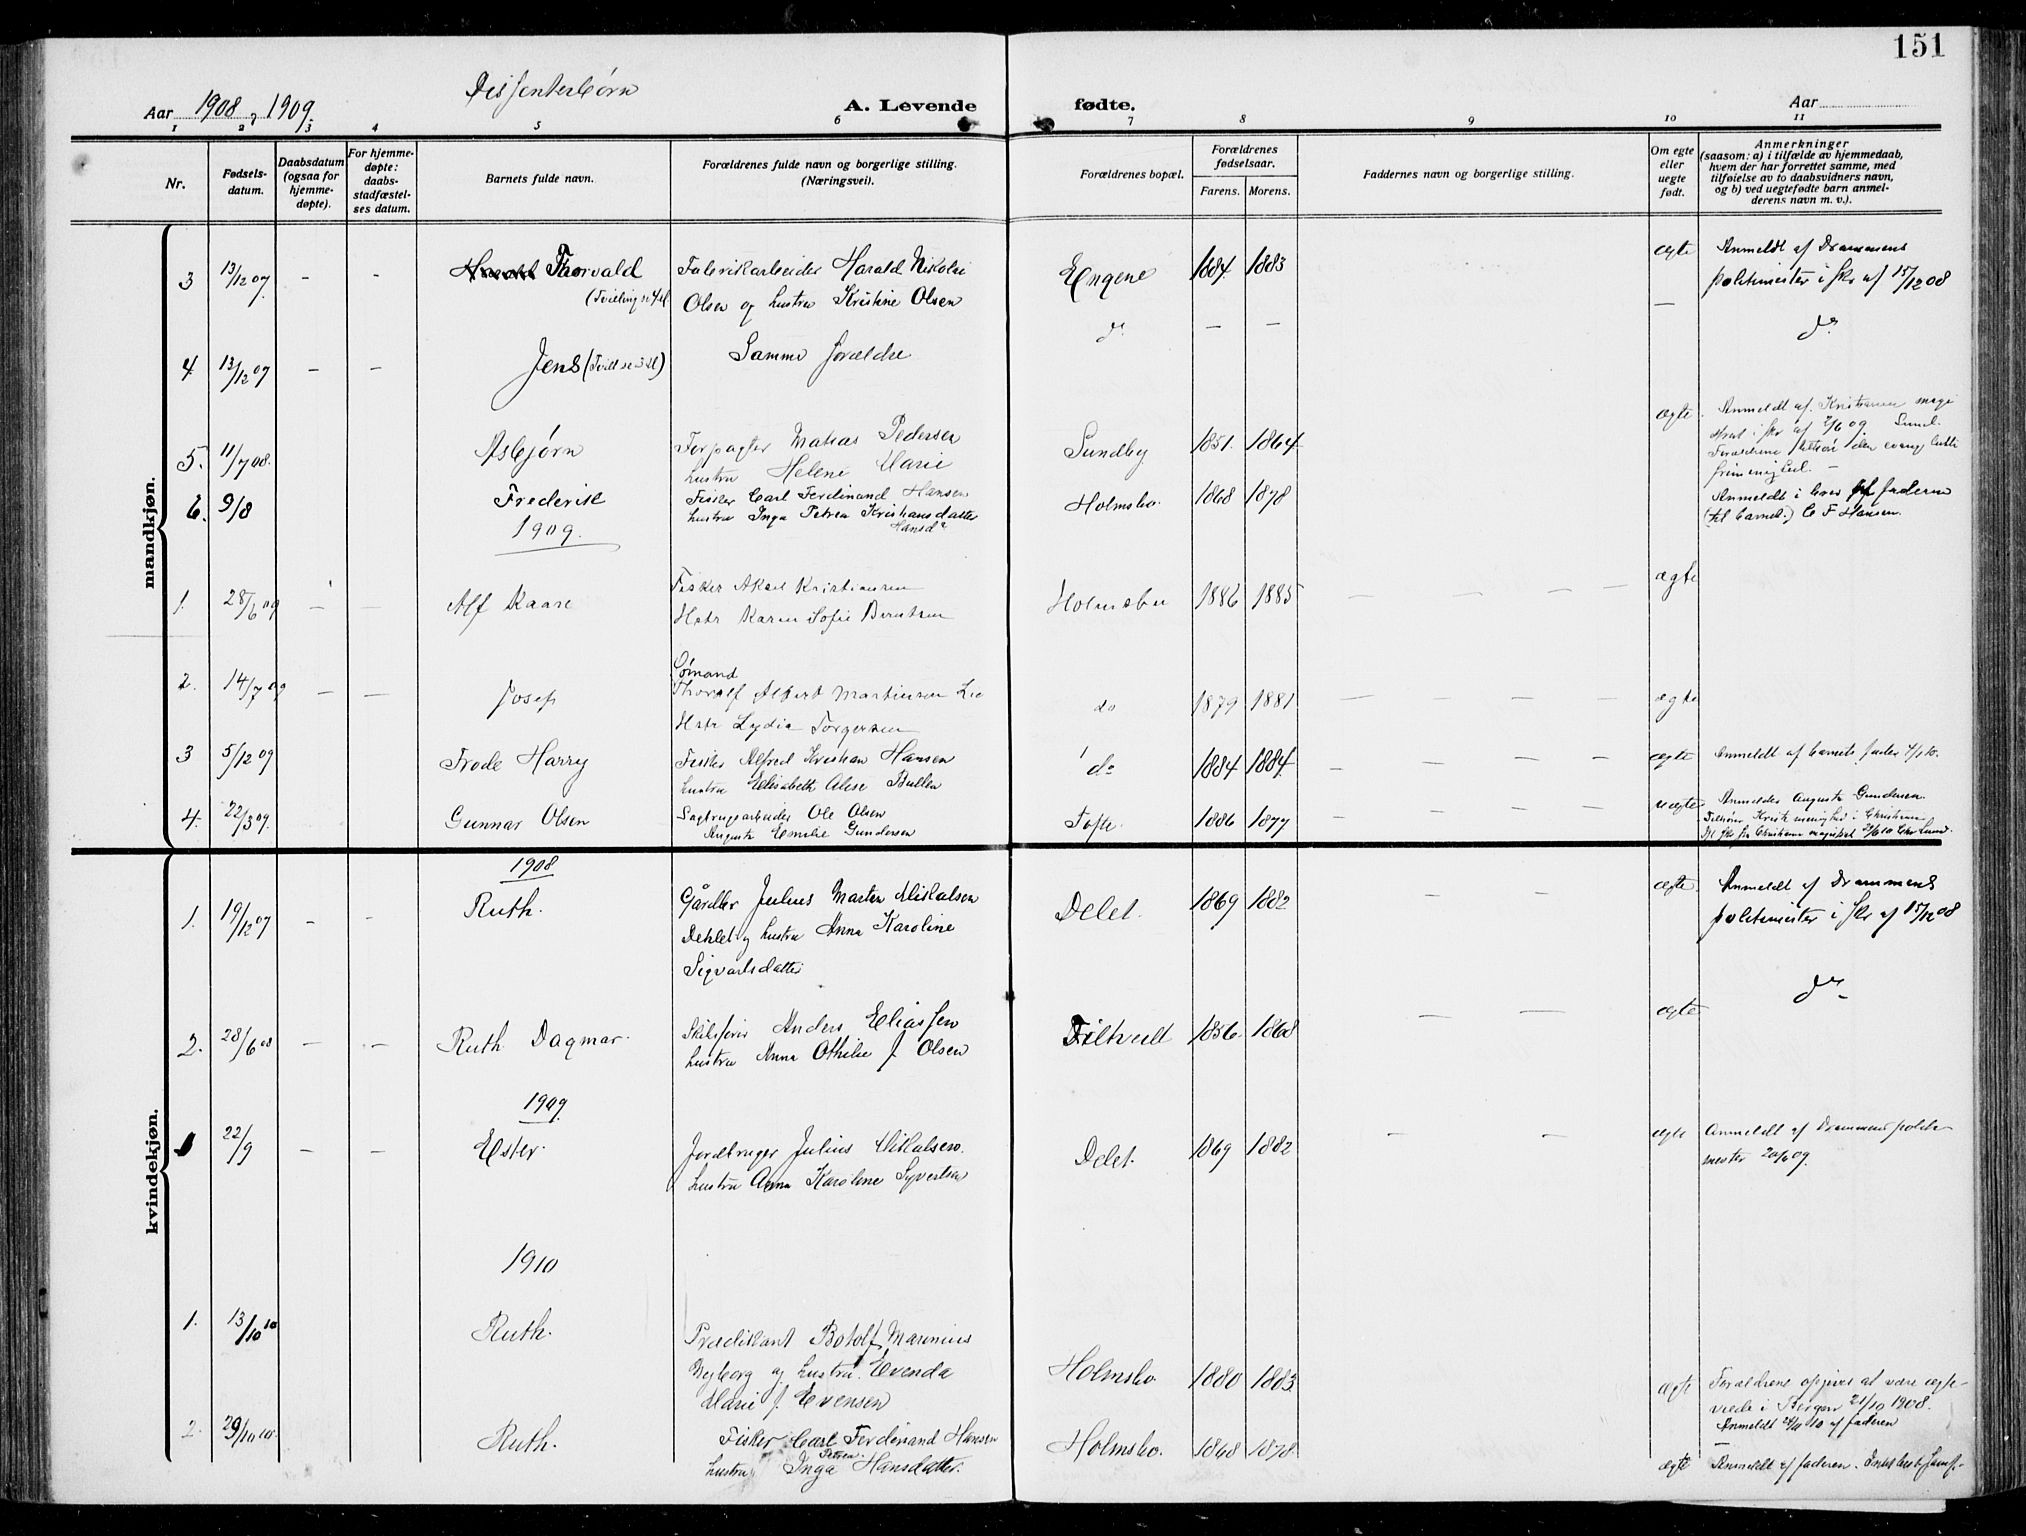 151
Dissenterbørn
Aar 1908, 1909.
A. Levende fødte.
Aar
1 2 3 4 5 6 7 8 9 10 11
Nr.
Fødsels-
datum.
Daabsdatum
(ogsaa for
hjemme-
døpte).
For hjemme-
døpte:
daabs-
stadfæstel-
ses datum.
Barnets fulde navn.
Forældrenes fulde navn og borgerlige stilling.
(Næringsvei).
Forældrenes bopæl.
Forældrenes
fødselsaar.
Farens. Morens.
Faddernes navn og borgerlige stilling.
Om egte
eller
uegte
født.
Anmerkninger
(saasom: a) i tilfælde av hjemmedaab,
hvem der har forrettet samme, med
tilføielse av to daabsvidners navn,
og b) ved uegtefødte barn anmel-
derens navn m. v.).
mandkjøn.
3 13/12 07 - - Thorvald Fabrikarbeider Harald Nikolai Engene 1884 1883 ægte Anmeldt af Drammens
(Tvilling se 4 tl Olsen og hustru Kristine Olsen — politimester i skr af 15/12 08
4 13/12 07 – – Jens (Tvill se 3 tl) Samme forældre do — — do
5. 11/7 08. Asbjørn Forpagter Mathias Pedersen Sundby 1851. 1864. ægte. Anmeldt af Kristiania magi
hustru Helene Marie strat i skr af 2/6 09
Forældrene den evang luth
frimenighed. —
6. 9/8 Frederik Fisker Carl Ferdinand Hansen Holmsbo. 1868 1878 Anmeldt i brev af faderen
hustru Inga Petrea Kristiansdatter (til barnet.) C F Hansen.
Hansdr
1909.
1. 28/6 09 – – Alf Kaare Fisker Aksel Kristiansen Holmsbu 1886 1885 — — — — ægte
Hstr Karen Sofie Berntsen
2. 14/7 09 — — Josef Sømand
Thoralf Albert Martinsen Lie do 1879 1881 — — — — ægte
Hstr Lydia Torgersen
3 5/12 09 Frode Harry Fisker Alfred Kristian Hansen do 1884 1884 – — — — ægte Anmeldt af barnets fader
hustru Elisabeth Alise Bullen
4. 22/3 09. Gunnar Olsen Sagbrugsarbeider Ole Olsen Tofte. 1886 1877 – – – – uægte Anmelder Augusta Gundersen.
Augusta Emelie Gundersen Tilhører Krist menighed i Christiania
kvindekjøn.
1908
1. 19/12 07 – – Ruth. Gårdbr Julius Martin Mikalsen Delet. 1869 1882 – – ægte Anmeldt af Drammens
Dehlet og hustru Anna Karoline politimester i skr af 15/12 08
Sigvartsdatter
2. 28/6 08 — — Ruth Dagmar. Skibsfører Anders Eliassen Filtvedt 1856. 1868 — — ægte do
hustru Anna Othilie f. Olsen
1909
1 22/9 – – Ester. Jordbruger Julius Mikalsen. Delet. 1869 1882 – – ægte Anmeldt af Drammens politi
hustru Anna Karoline Syvertsen mester 20/4 09.
1910
1. 13/10 10 Ruth. Prædikant Botolf Marinius
Nyborg og hustru Evenda Holmsbo 1880 1883 ægte Forældrene opgives at være ægte-
Marie f. Evensen viede i Bergen 21/10 1908.
Anmeldt 24/11 10 af faderen
2. 29/10 10. Ruth. Fisker Carl Ferdinand Hansen Holmsbo. 1868 1878. —
hustru Inga Petrea Hansdatter. ægte Anmeldt af faderen.